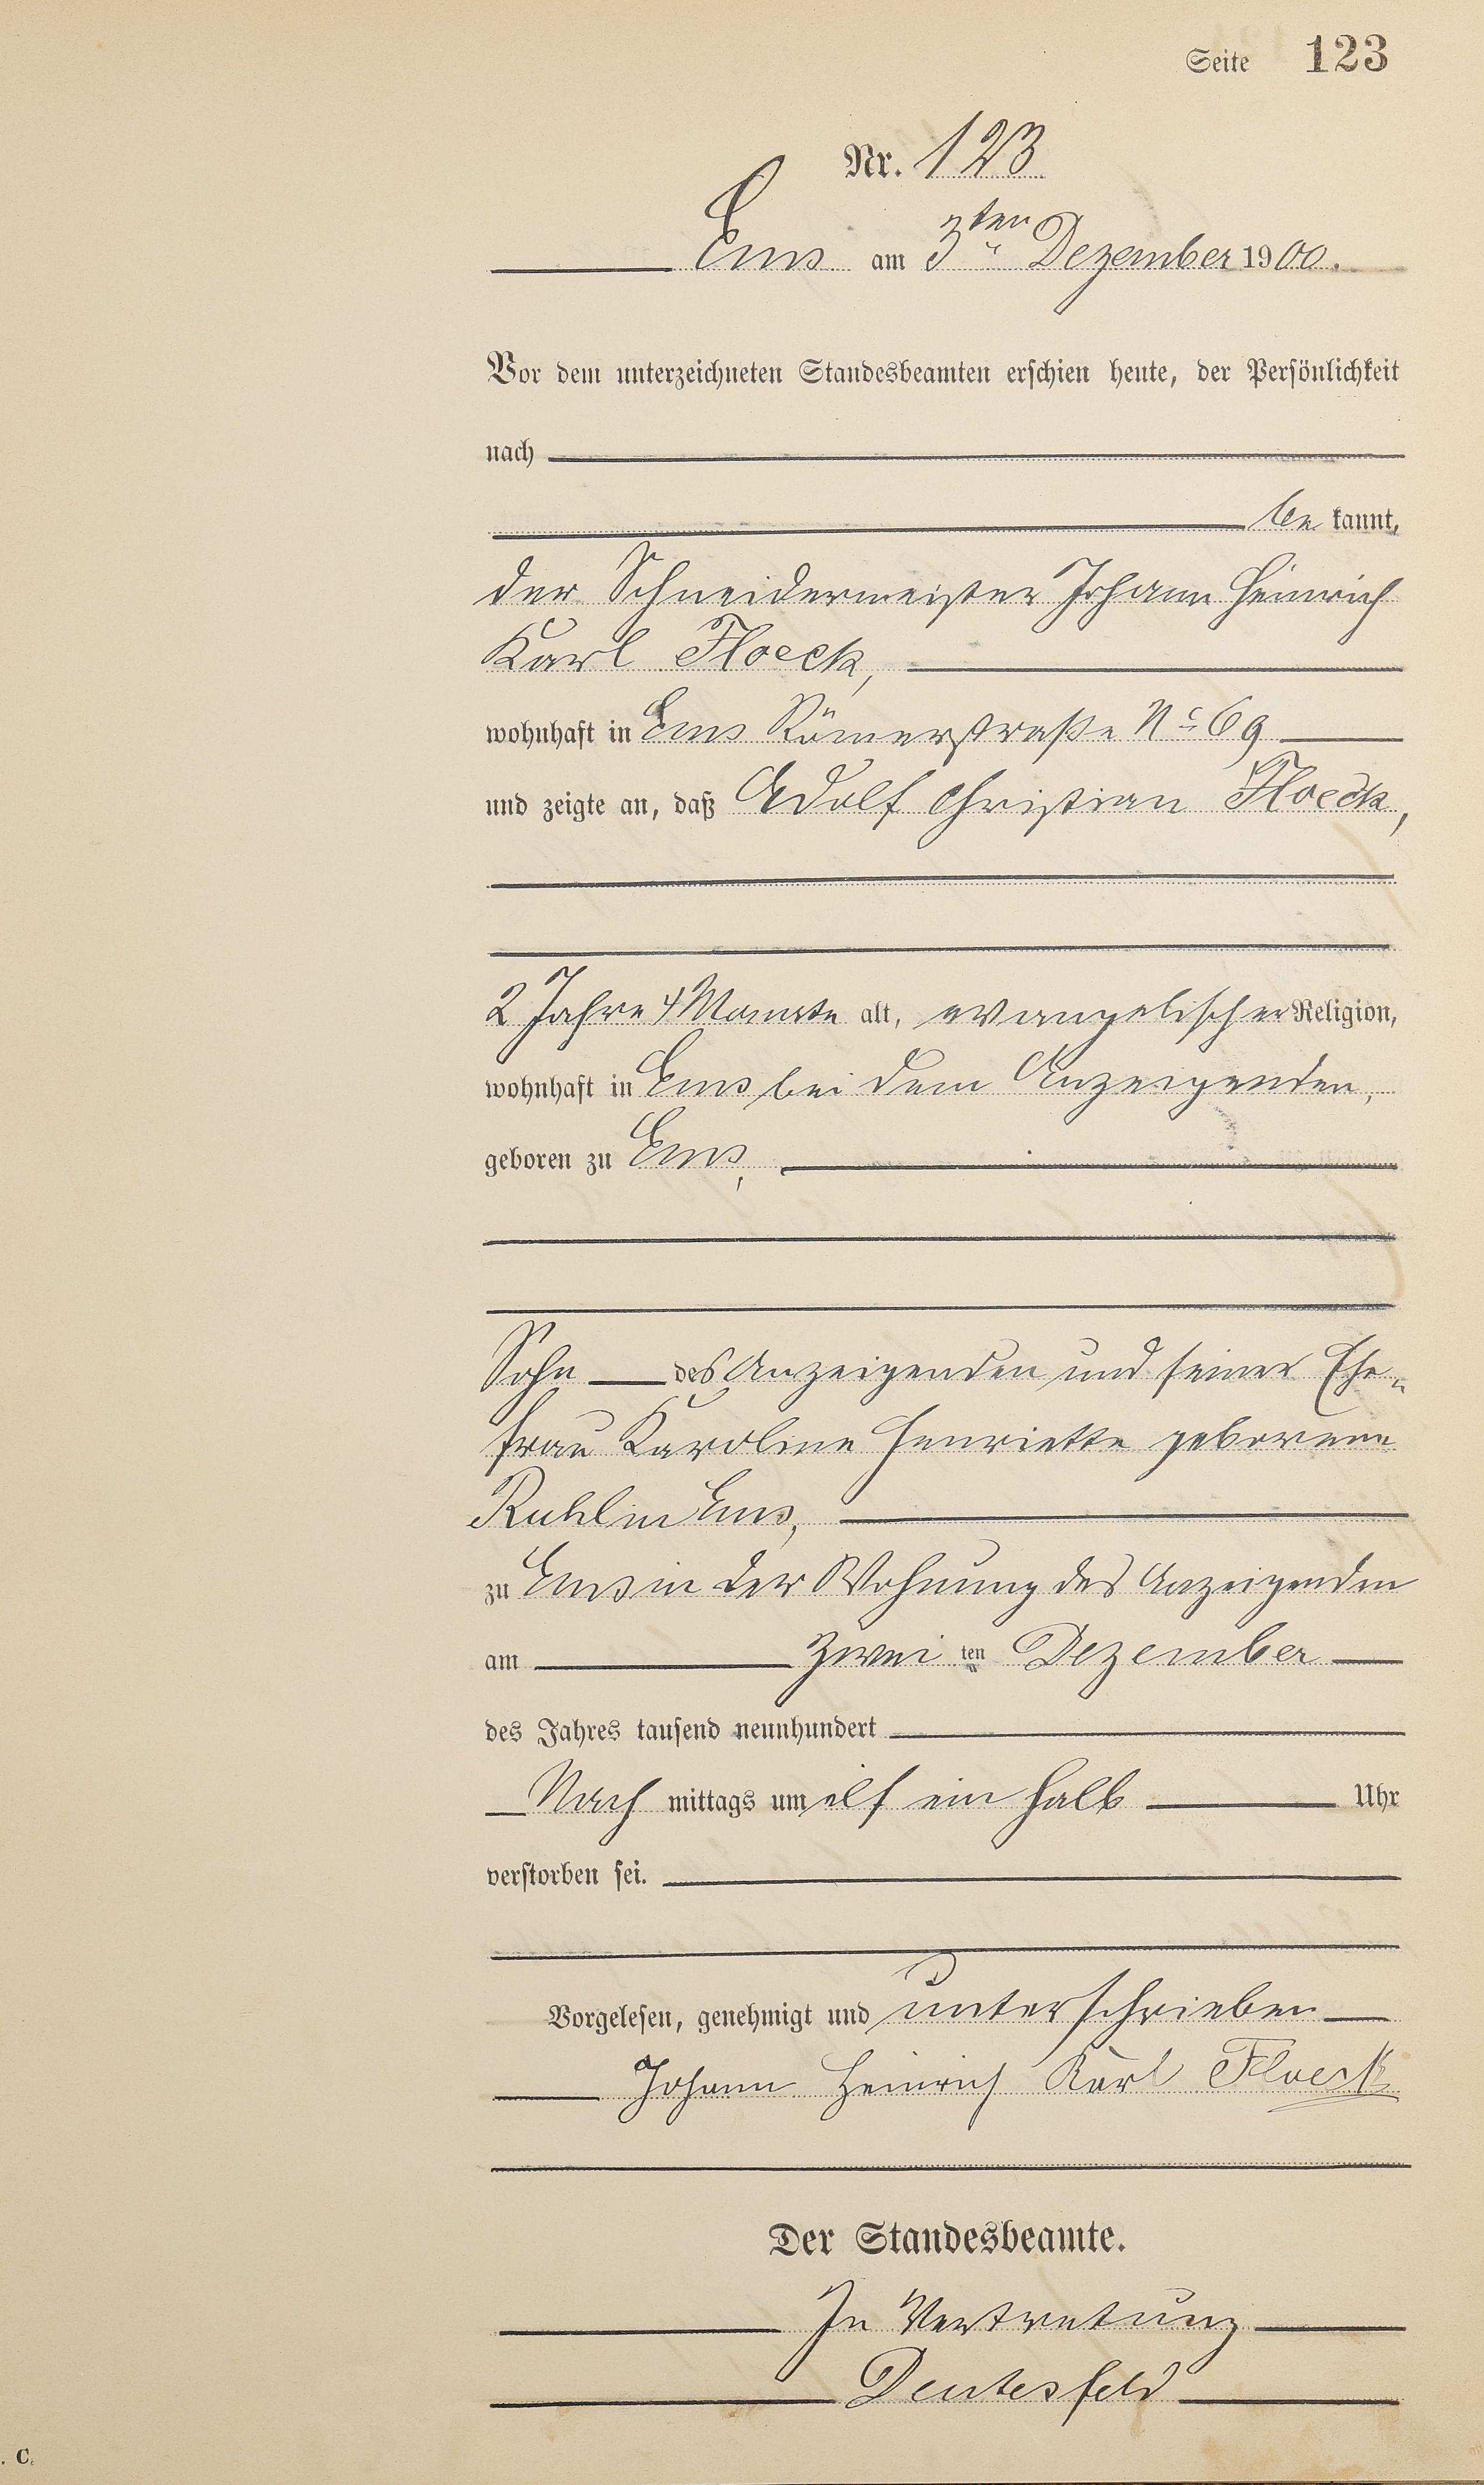 Seite 123
Nr. 123
Ems am 3ten Dezember 1900.
Vor dem unterzeichneten Standesbeamten erschien heute, der Persönlichkeit
nach
be kannt,
der Schneidermeister Johann Heinrich
Karl Floeck,
wohnhaft in Ems Römerstraße No 69
und zeigte an, daß Adolf Christian Floeck,
2 Jahre 4 Monate alt, evangelischer Religion,
wohnhaft in Ems bei dem Anzeigenden,
geboren zu Ems,
Sohn des Anzeigenden und seiner Ehe-
frau Karoline Henriette geborene
Ruhl in Ems,
zu Ems in der Wohnung des Anzeigenden
am zwei ten Dezember
des Jahres tausend neunhundert
Nach mittags um elf ein halb Uhr
verstorben sei.
Vorgelesen, genehmigt und unterschrieben
Johann Heinrich Karl Floeck
Der Standesbeamte.
In Vertretung
C.